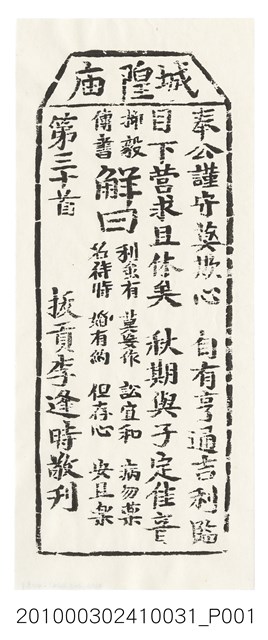 城隍庙
奉公謹守莫欺心 自有亨通吉利臨
目下營求且休矣 秋期與子定佳音
柳毅
傳書
解曰
有 莫妄作 訟宜和 病勿藥
名待時 婚有納 但存心 安且樂
第三十首 拔貢李逢時敬刊
201000302410031_P001